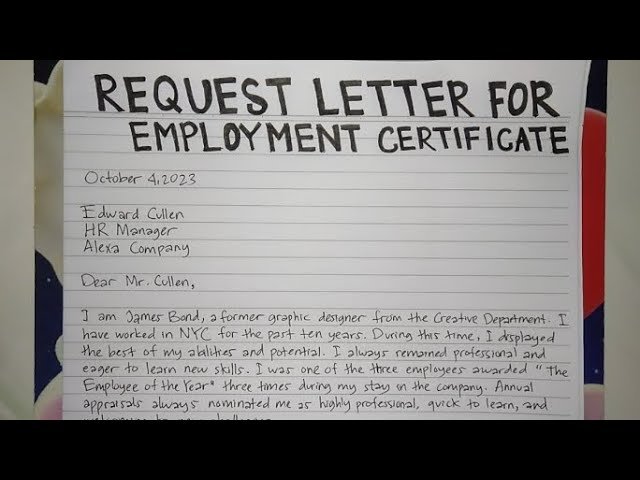 REQUEST LETTER FOR
EMPLOYMENT CERTIFICATE
October 4, 2023
Edward Cullen
HR Manager
Alexa Company
Dear Mr. Cullen,
I am James Bond, a former graphic designer from the Creative Department. I
have worked in NYC for the past ten years. During this time, I displayed
the best of my abilities and potential. I always remained professional and
eager to learn new skills. I was one of the three employees awarded "The
Employee of the Year" three times during my stay in the company. Annual
appraisals always nominated me as highly professional, quick to learn, and